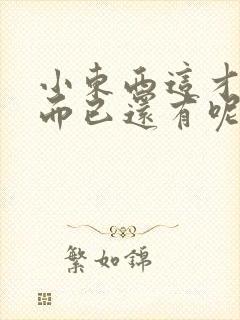 小東西這才
而已還有呢
繁如錦